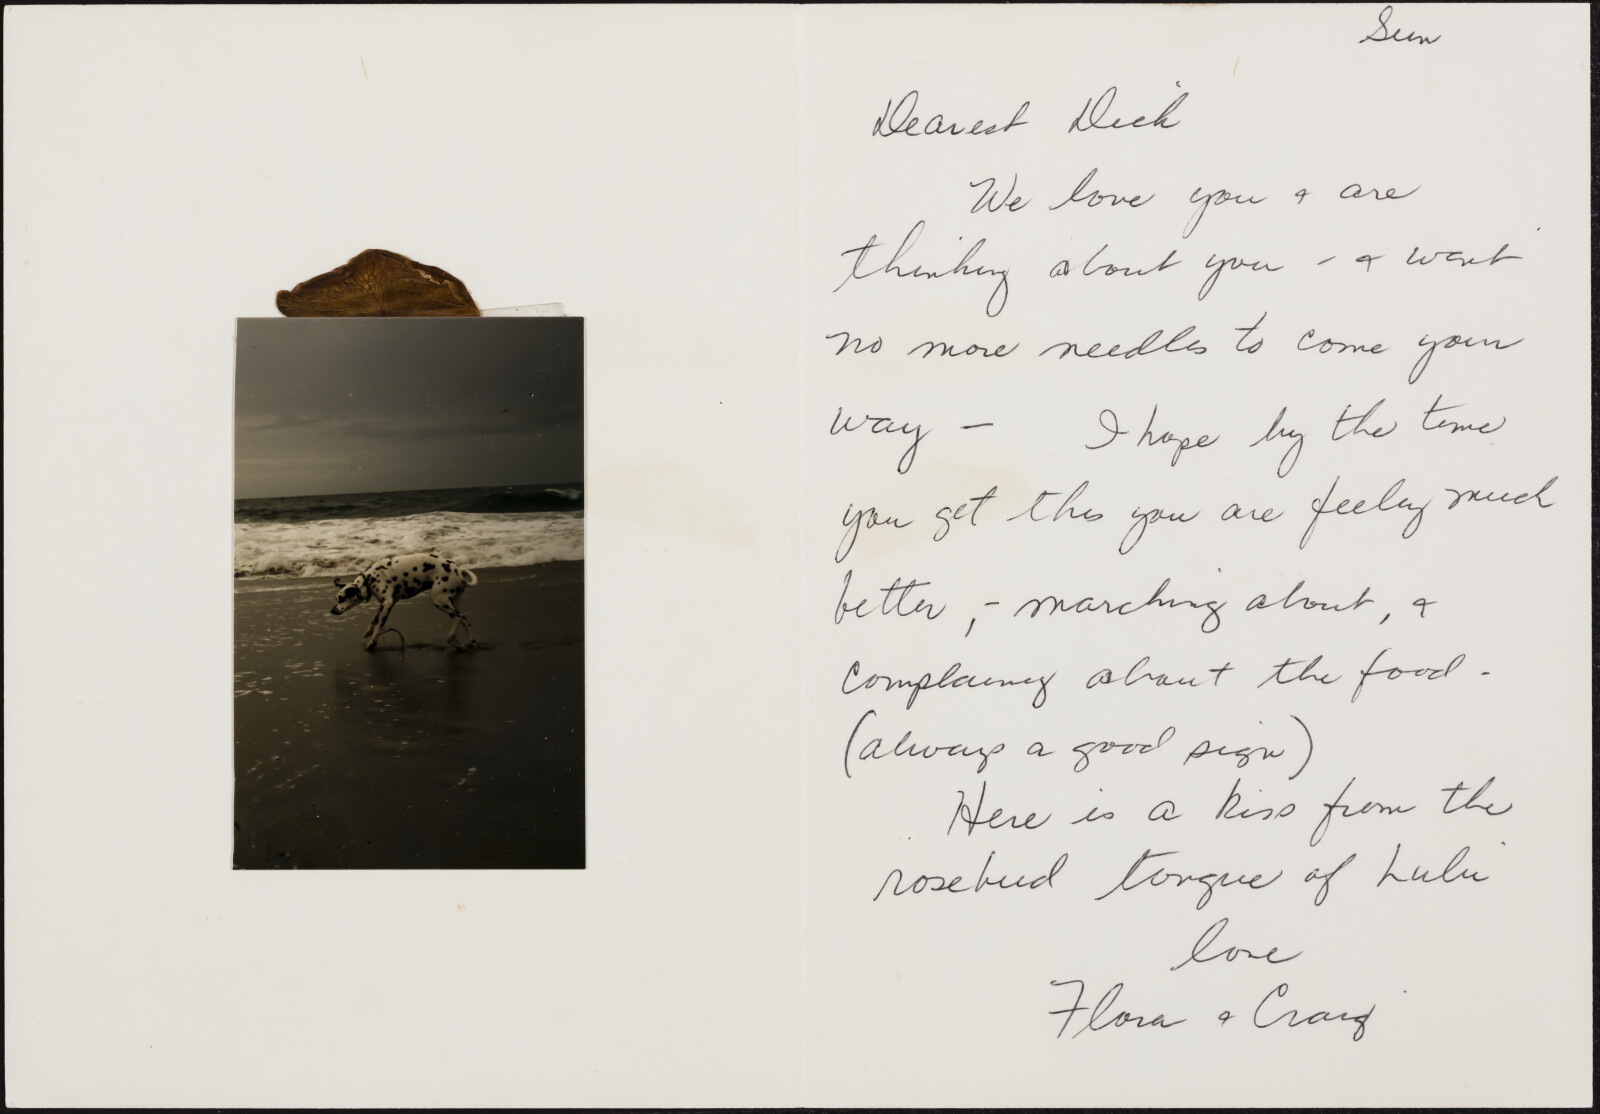 Sun
Dearest Dick
We love you & are
thinking about you - & want
no more needles to come your
way - I hope by the time
you get this you are feeling much
better, - marching about, &
complaining about the food -
(always a good sign)
Here is a kiss from the
rosebud tongue of Lulu
love
Flora & Craig